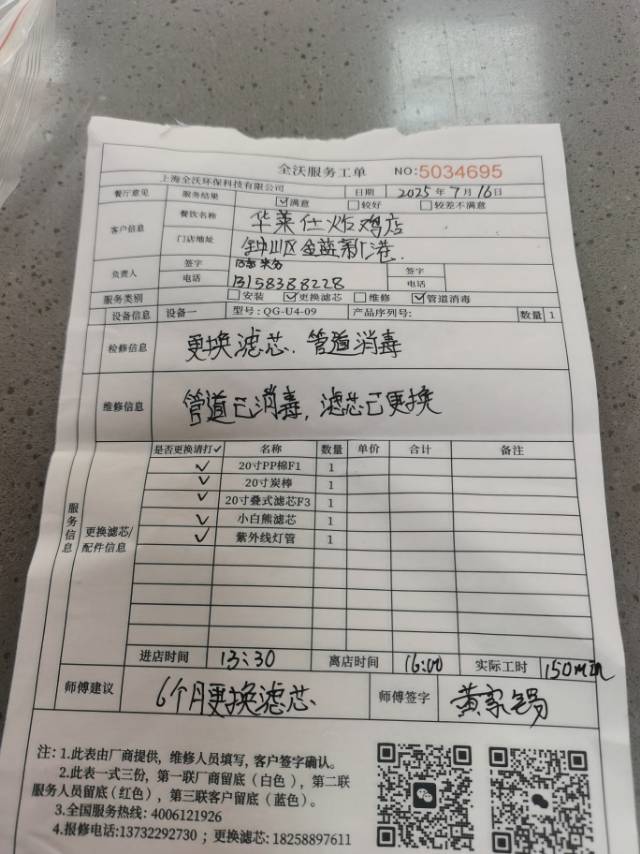 全沃服务工单 NO:5034695
上海全沃环保科技有限公司 日期 2025年7月16日
餐厅意见 服务结果 ☑满意 □较好 □较差不满意
客户信息 餐饮名称 华莱仕炸鸡店
门店地址 钟山区金蓝新仁港
负责人 签字 签字
电话 13158388228 电话
服务类别 □安装 ☑更换滤芯 □维修 ☑管道消毒
设备信息 设备一 型号:QG-U4-09 产品序列号: 数量 1
检修信息 更换滤芯.管道消毒
维修信息 管道已消毒,滤芯已更换
服务信息
更换滤芯/配件信息
是否更换请打✓ 名称 数量 单价 合计 备注
✓ 20寸PP棉F1 1
✓ 20寸炭棒 1
✓ 20寸叠式滤芯F3 1
✓ 小白熊滤芯 1
✓ 紫外线灯管 1
进店时间 13:30 离店时间 16:00 实际工时 150min
师傅建议 6个月更换滤芯 师傅签字 黄家锡
注:1.此表由厂商提供,维修人员填写,客户签字确认。
2.此表一式三份,第一联厂商留底(白色),第二联
服务人员留底(红色),第三联客户留底(蓝色)。
3.全国服务热线:4006121926
4.报修电话:13732292730;更换滤芯:18258897611